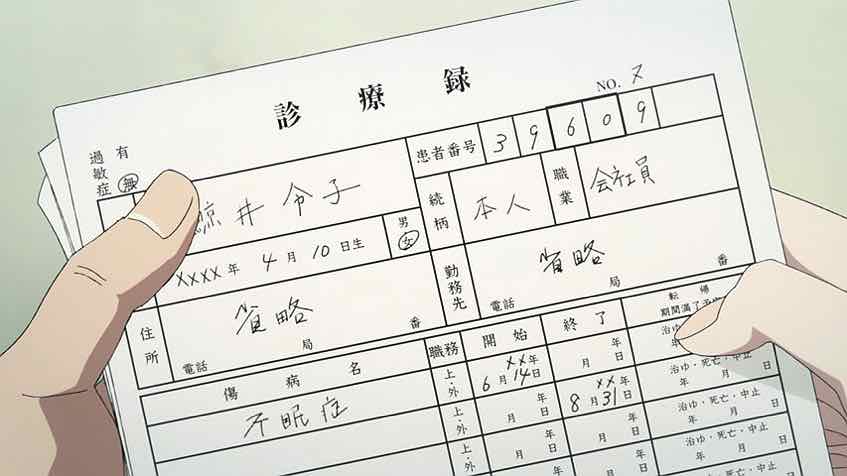 診療録
NO. 2
過敏症 有 無
患者番号 39609
井令子
続柄 本人 職業 会社員
男 女
XXXX年4月10日生
住所 省略
電話 局 番
勤務先 省略
電話 局 番
傷病名 職務 開始 終了 転帰
期間満了予定
上・外 XX年 6月14日 年 月 日 治ゆ・死亡・中止 年
不眠症 上・外 年 月 日 XX年 8月31日 治ゆ・死亡・中止 年 月 日
上・外 年 月 日 年 月 日 治ゆ・死亡・中止 年 月 日
上・外 年 月 日 治ゆ・死亡・中止